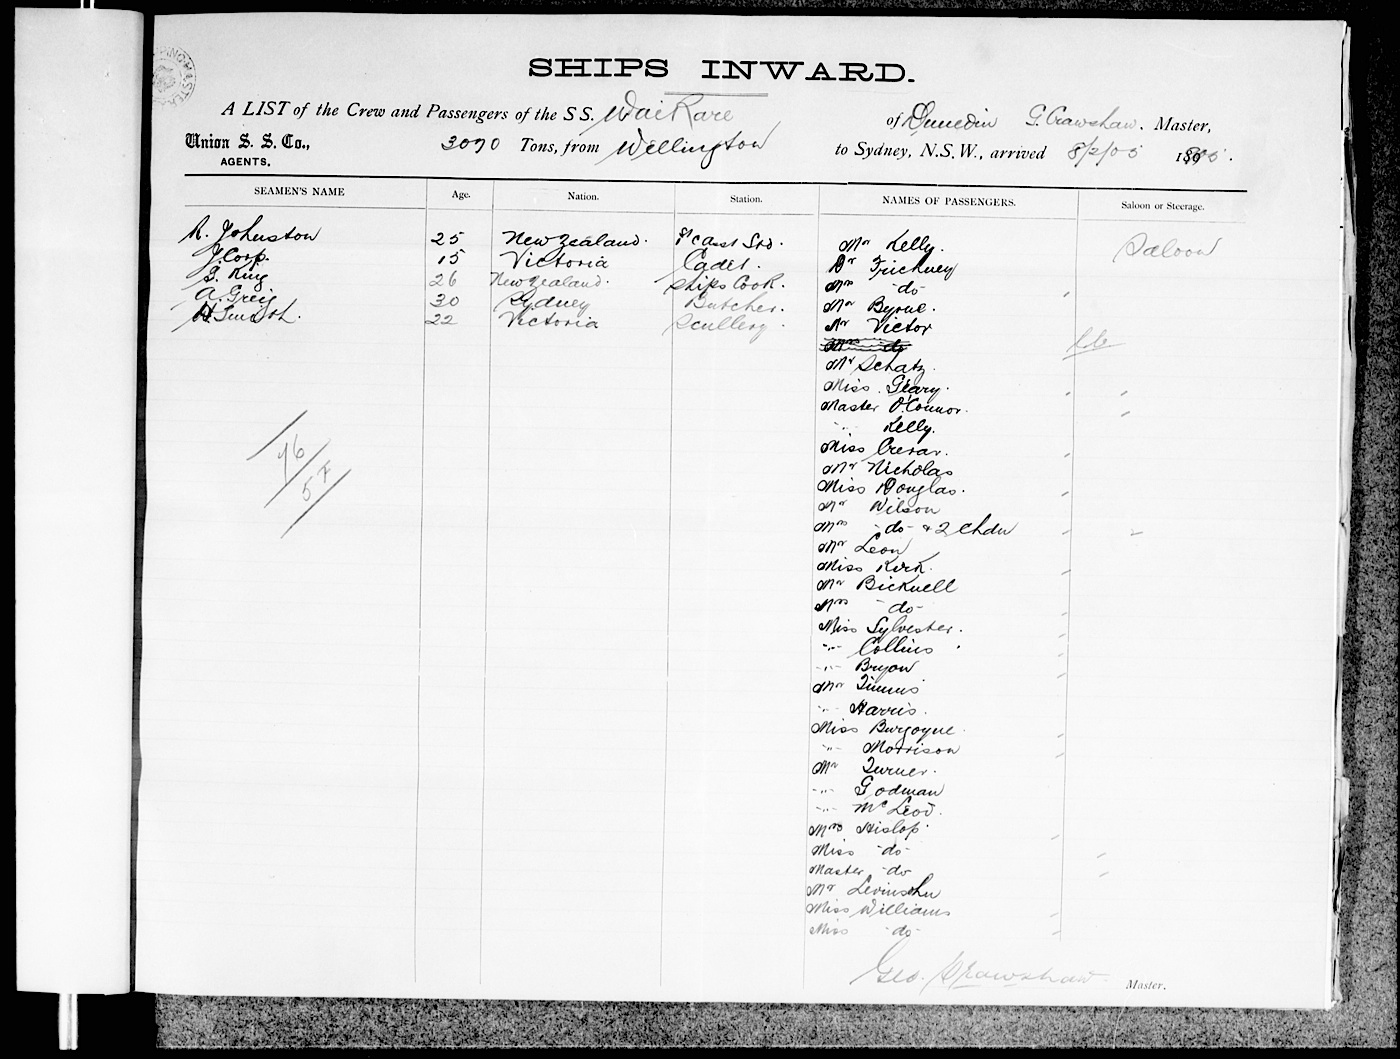 SHIPS INWARD.
A LIST of the Crew and Passengers of the S S. Wai Rare of Dunedin G. Crawshaw. Master,
Union S. S. Co., AGENTS, 3070 Tons, from Wellington to Sydney, N.S.W., arrived 8/2/05
SEAMEN'S NAME Age. Nation. Station. NAMES OF PASSENGERS. Saloon or Steerage.
R. Johnston 25 New Zealand. Mr Kelly. Saloon
J. Corp. 15 Victoria Cadet. Dr Trickney
G. King 26 New Zealand. Ships Cook. Mrs -do-
A. Greig 30 Sydney Butcher. Mr Byrne.
H Smith. 22 Victoria Scullery. Mr Victor
Mrs do
Mr Schatz.
Miss. Geary.
Master O'Connor.
-"- Kelly.
Miss Crerar.
Mr Nicholas
Miss Douglas.
Mr Wilson
Mrs -do- & 2 Chdn
Mr Leon
Miss Kirk.
Mr Bicknell
Mrs -do-
Miss Sylvester.
-"- Collins
-"- Bryon
Mr Timms
-"- Harris.
Miss Burgoyne.
-"- Morrison
Mr Turner.
-"- Godman
-"- McLeod.
Mrs Hislop
Miss -do-
Master -do-
Mr Levinsohn
Miss Williams
Miss -do-
76
57
Geo. Crawshaw Master.